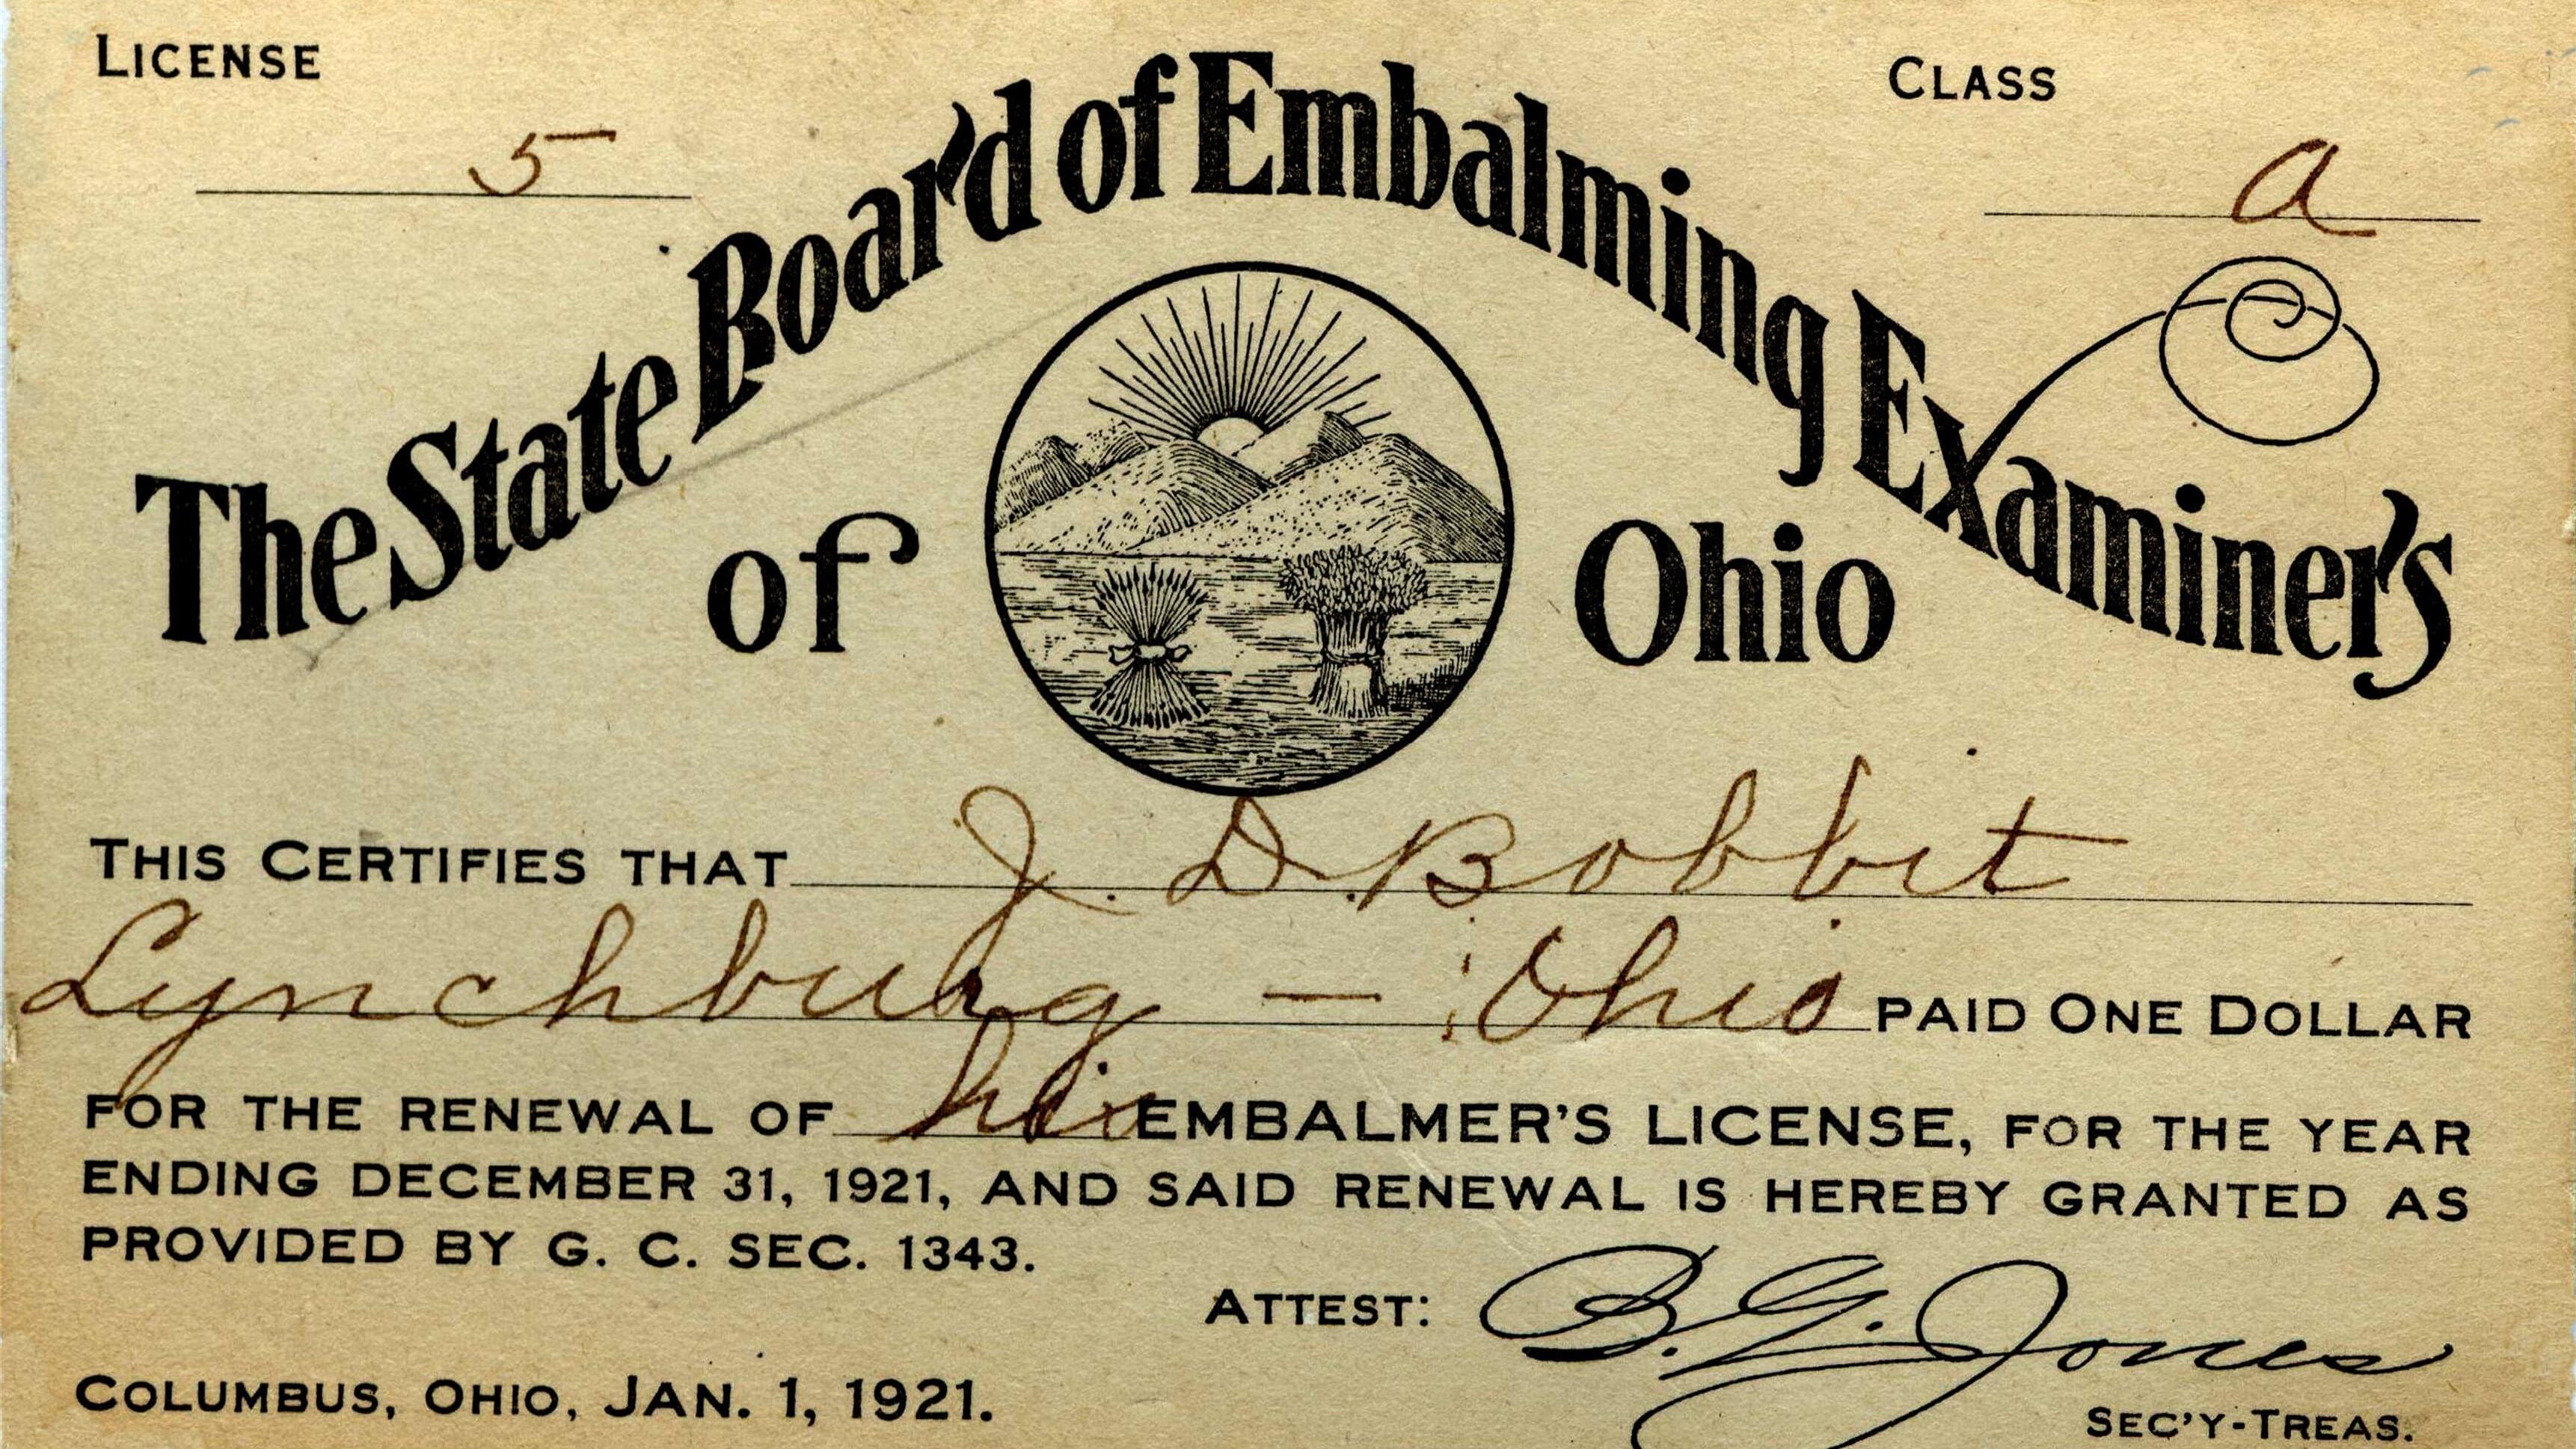 LICENSE
5
CLASS
a
The State Board of Embalming Examiner's
of Ohio
THIS CERTIFIES THAT J. D. Bobbit
Lynchburg — Ohio PAID ONE DOLLAR
FOR THE RENEWAL OF his EMBALMER'S LICENSE, FOR THE YEAR
ENDING DECEMBER 31, 1921, AND SAID RENEWAL IS HEREBY GRANTED AS
PROVIDED BY G. C. SEC. 1343.
ATTEST: B. G. Jones
COLUMBUS, OHIO, JAN. 1, 1921.
SEC'Y-TREAS.